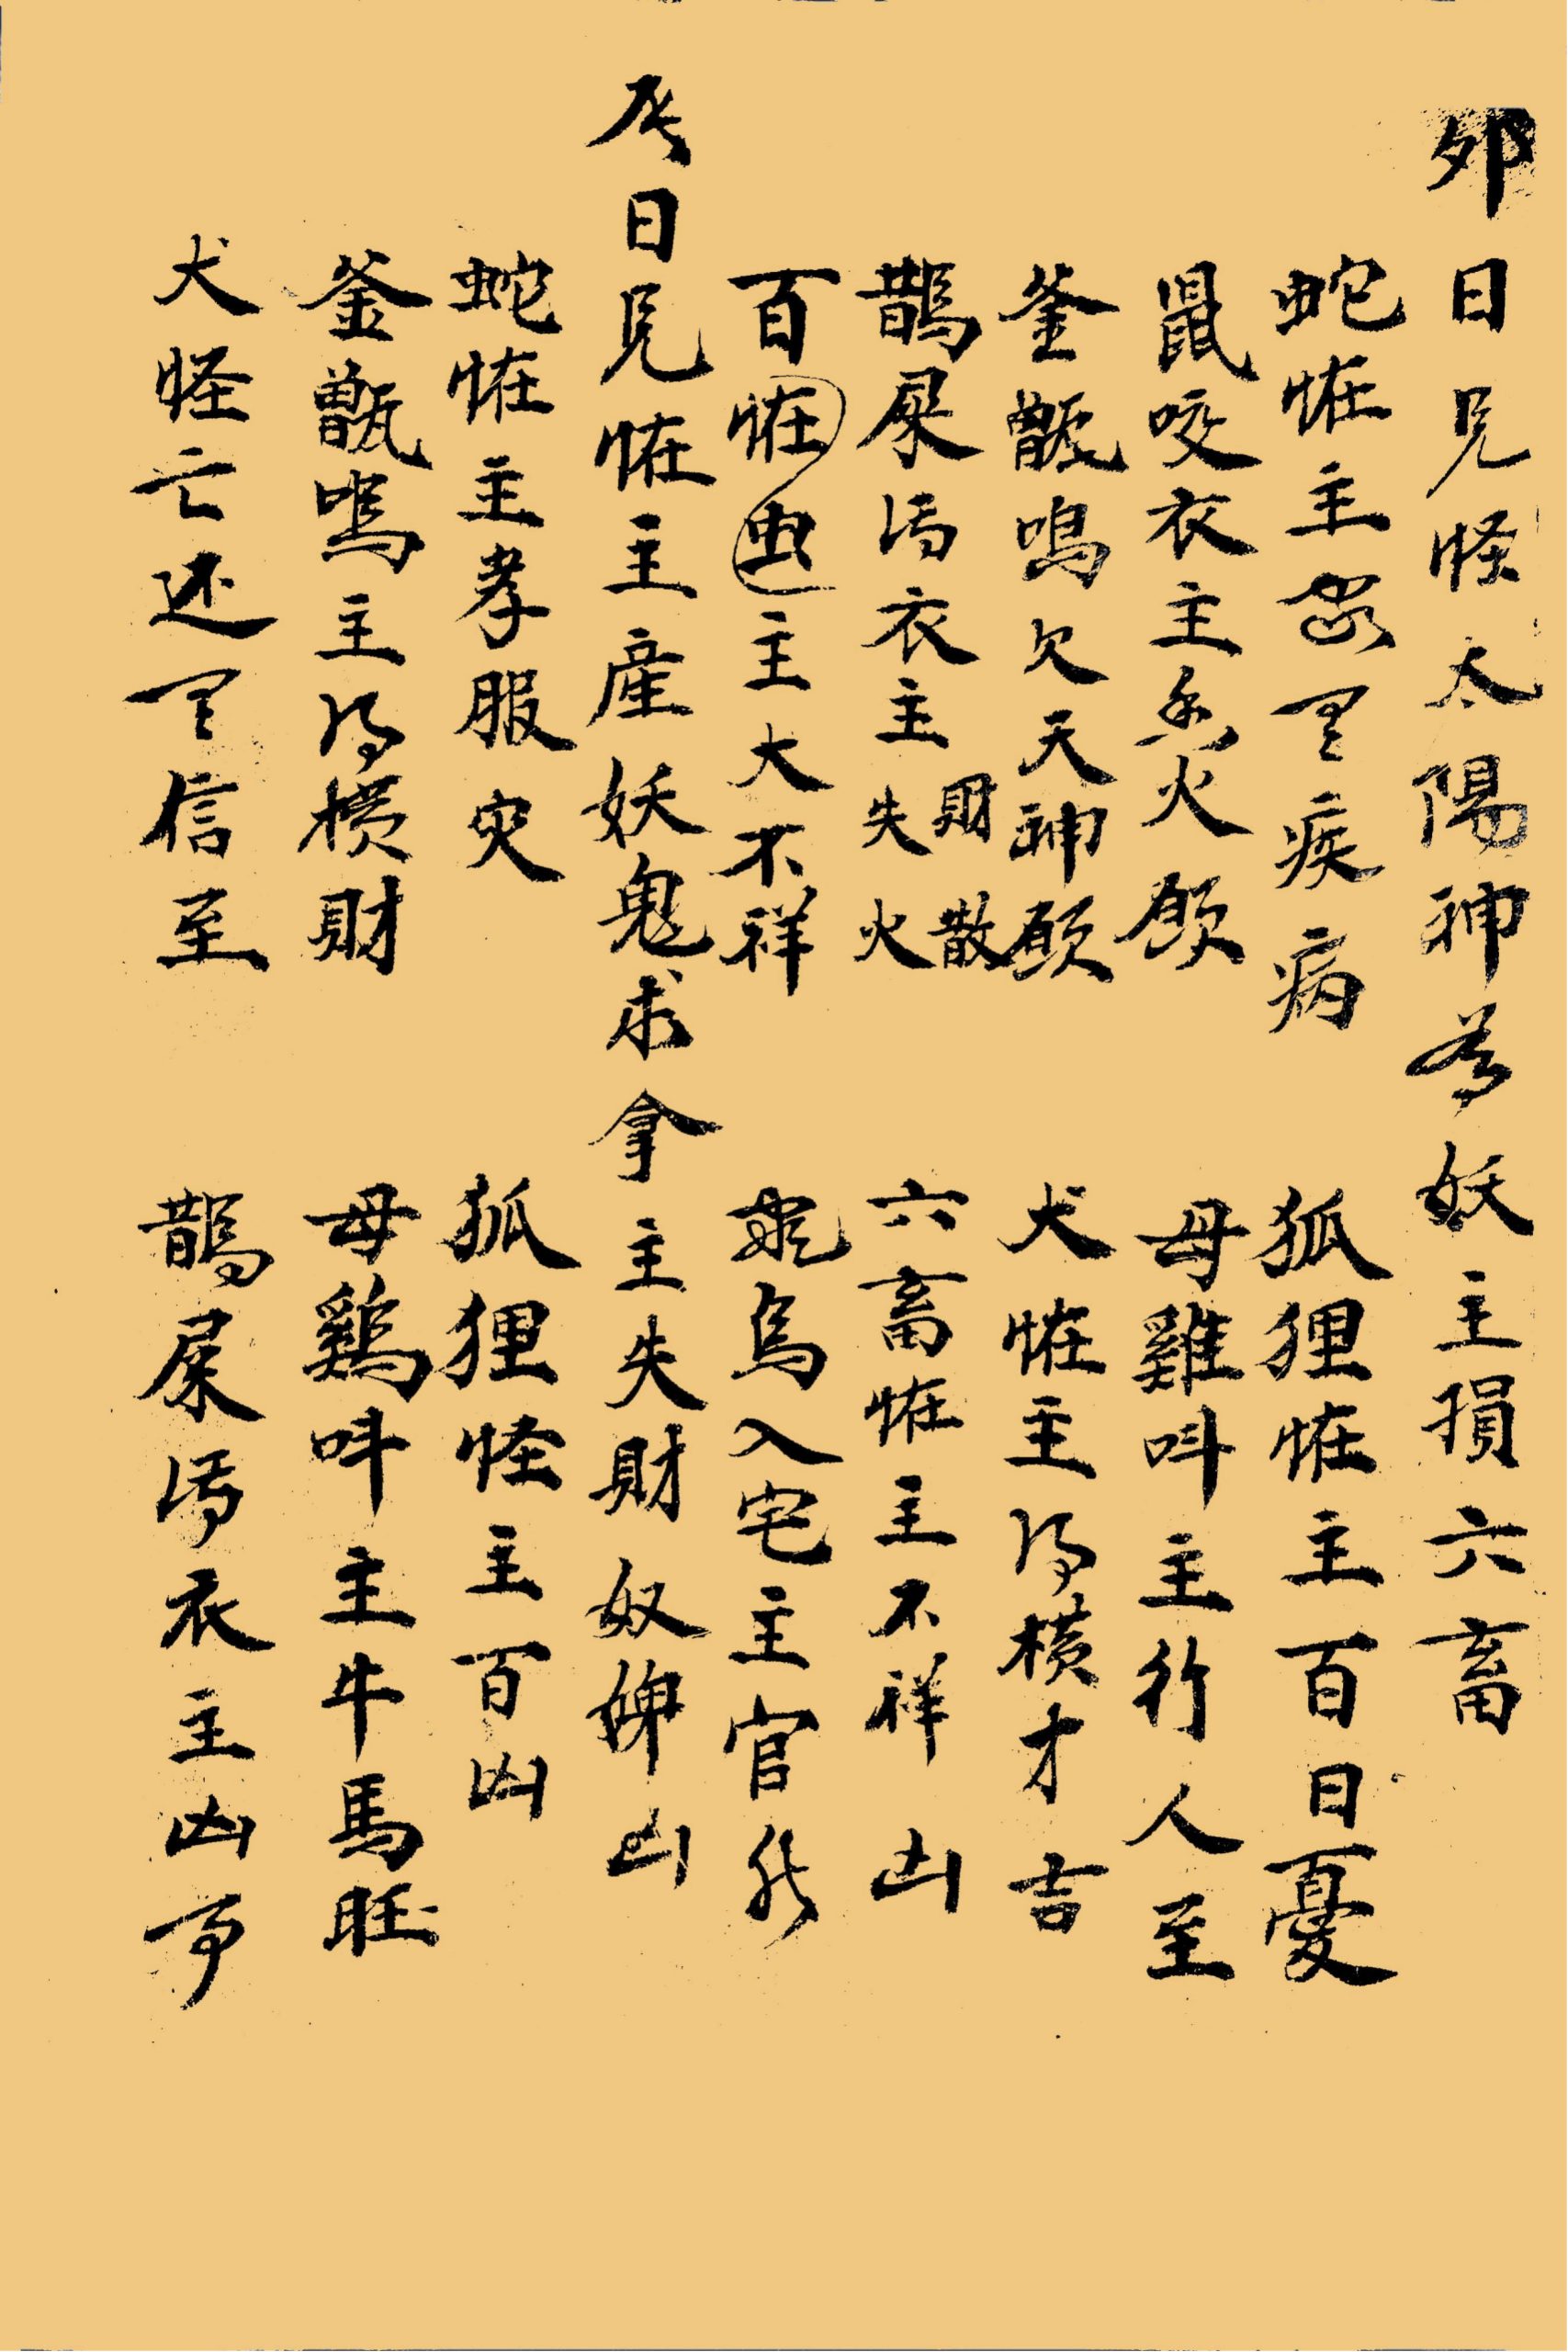 卯日見怪太陽神為妖主損六畜
蛇恠主家里疾病 狐狸恠主百日憂
鼠咬衣主香火願 母雞呌主行人至
釜甑鳴欠天神願 犬恠主得橫才吉
鵲屎污衣主財散失火 六畜恠主不祥凶
百恠虫主大不祥 鳥入宅主官非
辰日見恠主產妖鬼求拿主失財奴婢凶
蛇恠主孝服灾 狐狸怪主百凶
釜甑鳴主得横財 母鷄呌主牛馬旺
犬怪亡还里信至 鵲屎污衣主凶事